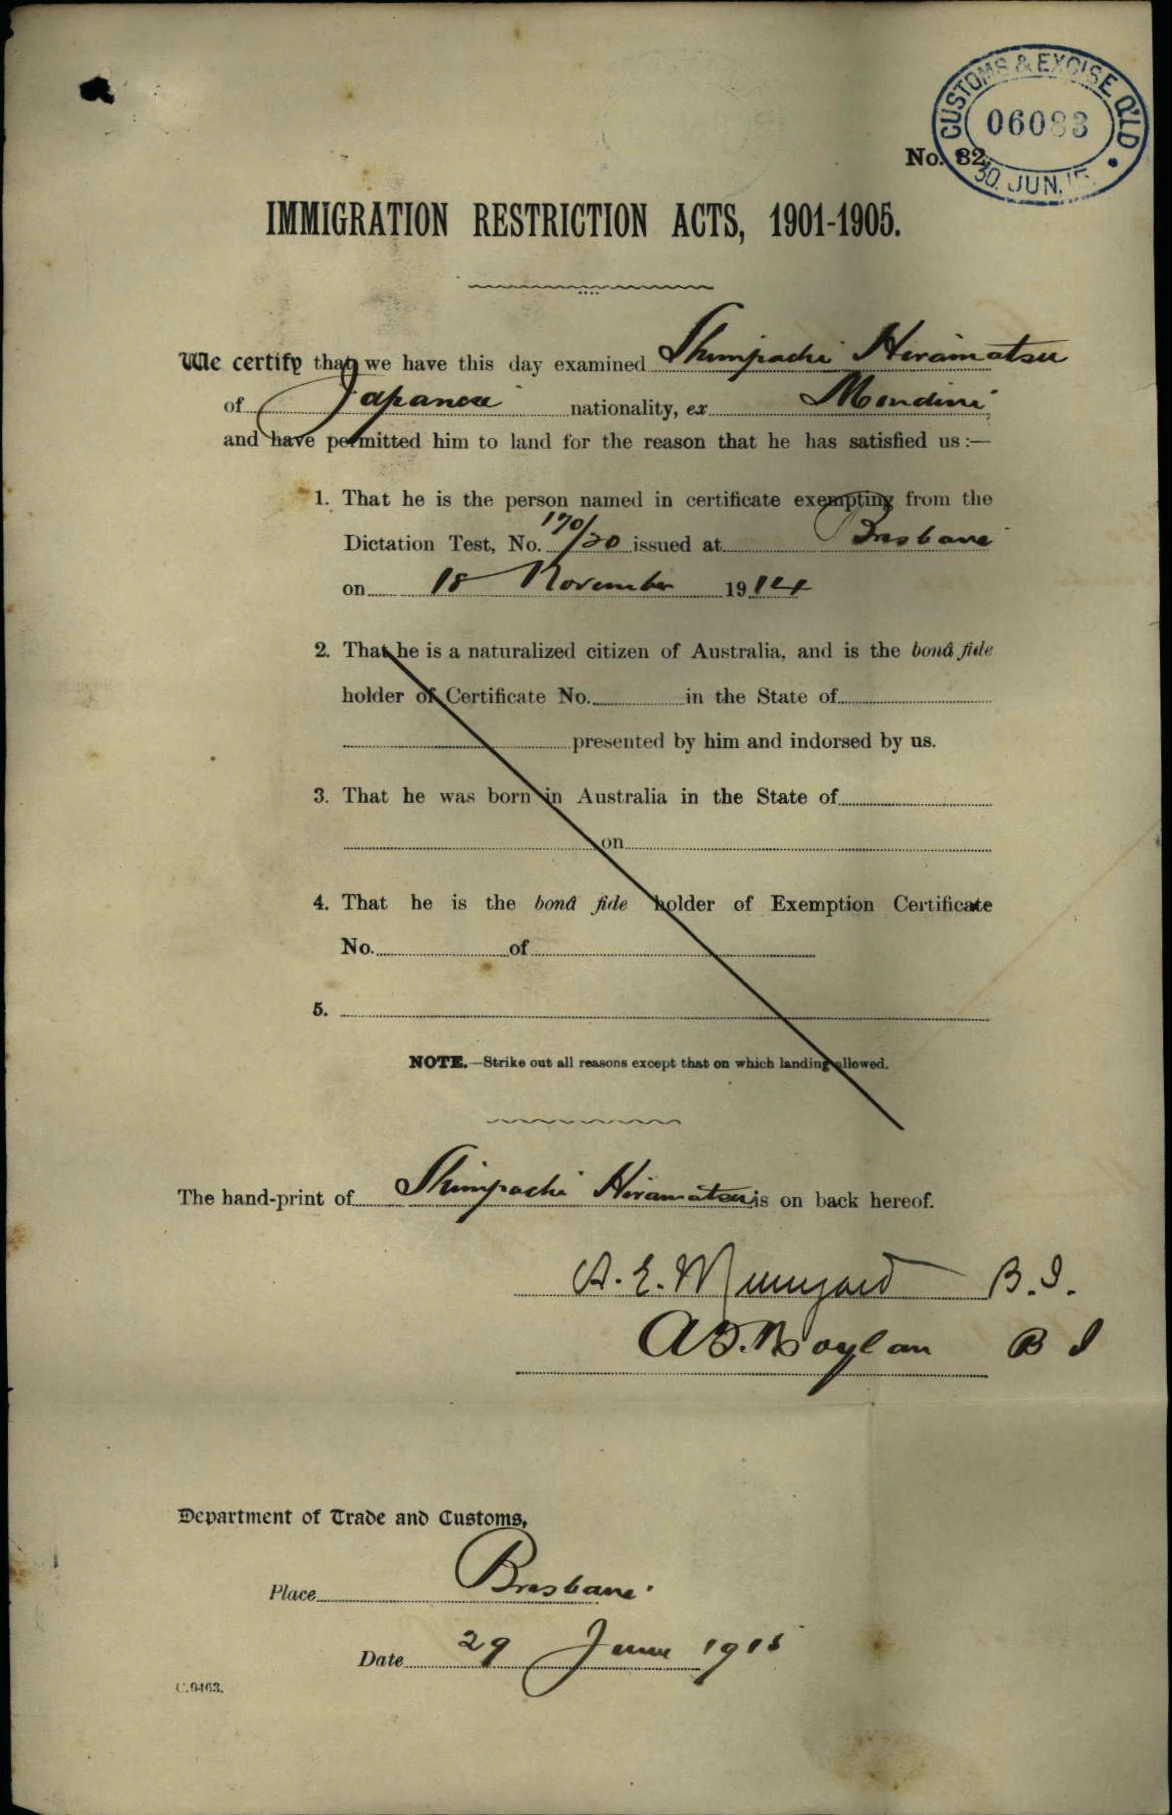 CUSTOMS & EXCISE Q'LD
06083
30. JUN. 15
No. 32.
IMMIGRATION RESTRICTION ACTS, 1901-1905.
We certify that we have this day examined Shimpachi Hiramatsu
of Japanese nationality, ex
and have permitted him to land for the reason that he has satisfied us :—
1. That he is the person named in certificate exempting from the
Dictation Test, No. 170/20 issued at Brisbane
on 18 November 1914
2. That he is a naturalized citizen of Australia, and is the bonâ fide
holder of Certificate No. in the State of
presented by him and indorsed by us.
3. That he was born in Australia in the State of
on
4. That he is the bonâ fide holder of Exemption Certificate
No. of
5.
NOTE.—Strike out all reasons except that on which landing allowed.
The hand-print of Shimpachi Hiramatsu is on back hereof.
A. E. B. I.
Boylan B I
Department of Trade and Customs,
Place Brisbane
Date 29 June 1915
C.9463.